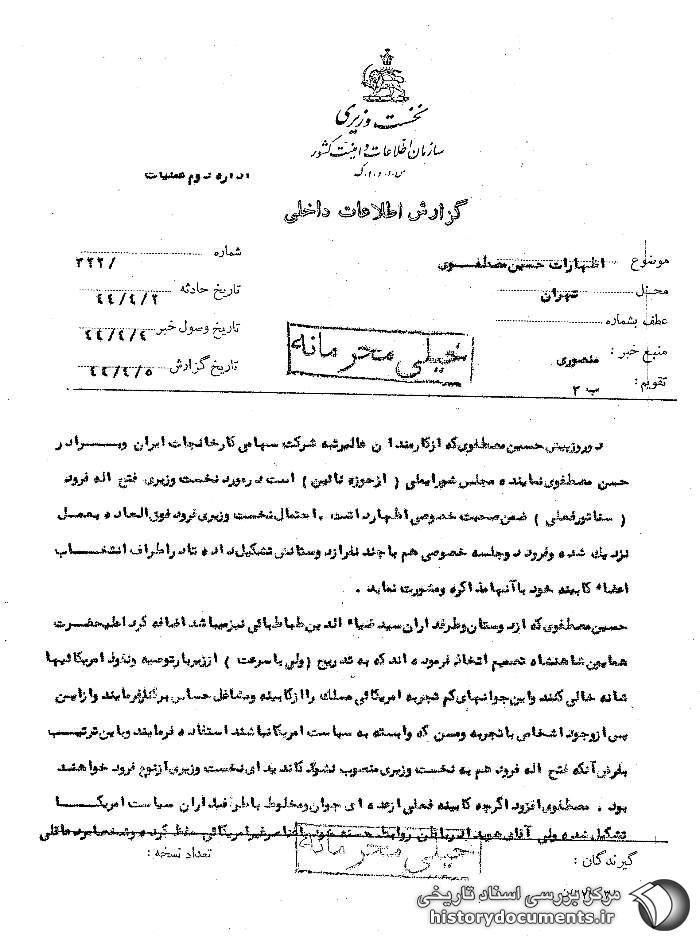 نخست وزیری
سازمان اطلاعات و امنیت کشور
س.ا.و.ا.ک
اداره دوم عملیات
گزارش اطلاعات داخلی
موضوع اظهارات حسین مصطفوی
شماره ۳۲۲/
محل تهران
تاریخ حادثه ۴۴/۴/۲
عطف بشماره
تاریخ وصول خبر ۴۴/۴/۴
منبع خبر : منصوری
تاریخ گزارش ۴۴/۴/۵
تقویم : ب ۲
خیلی محرمانه
دو روز پیش حسین مصطفوی که از کارمندان عالیرتبه شرکت سهامی کارخانجات ایران و برادر
حسن مصطفوی نماینده مجلس شورایملی ( از حوزه نائین ) است در مورد نخست وزیری فتح اله فرود
( سناتور فعلی ) ضمن صحبت خصوصی اظهار داشت . احتمال نخست وزیری فرود فوق العاده بعمل
نزدیک شده و فرود دو جلسه خصوصی هم با چند نفر از دوستانش تشکیل داده تا در اطراف انتخاب
اعضاء کابینه خود با آنها مذاکره و مشورت نماید .
حسین مصطفوی که از دوستان و طرفداران سید ضیاء الدین طباطبائی نیز میباشد اضافه کرد اعلیحضرت
همایون شاهنشاه تصمیم اتخاذ فرموده اند که به تدریج ( ولی با سرعت ) از زیر بار توصیه و نفوذ امریکائیها
شانه خالی کنند و این جوانهای کم تجربه امریکائی مسلک را از کابینه و مشاغل حساس برکنار فرمایند و از این
پس از وجود اشخاص با تجربه و مسن که وابسته به سیاست امریکا نباشند استفاده فرمایند و باین ترتیب
بفرض آنکه فتح اله فرود هم به نخست وزیری منصوب نشود کاندیدای نخست وزیری از نوع فرود خواهند
بود . مصطفوی افزود اگرچه کابینه فعلی از عده ای جوان و مخلوط با طرفداران سیاست امریکا
تشکیل شده ولی آقای هویدا روابط حسنه خود را با عناصر غیر امریکائی حفظ کرده و
گیرندگان :
تعداد نسخه :
خیلی محرمانه
مرکز بررسی اسناد تاریخی
historydocuments.ir